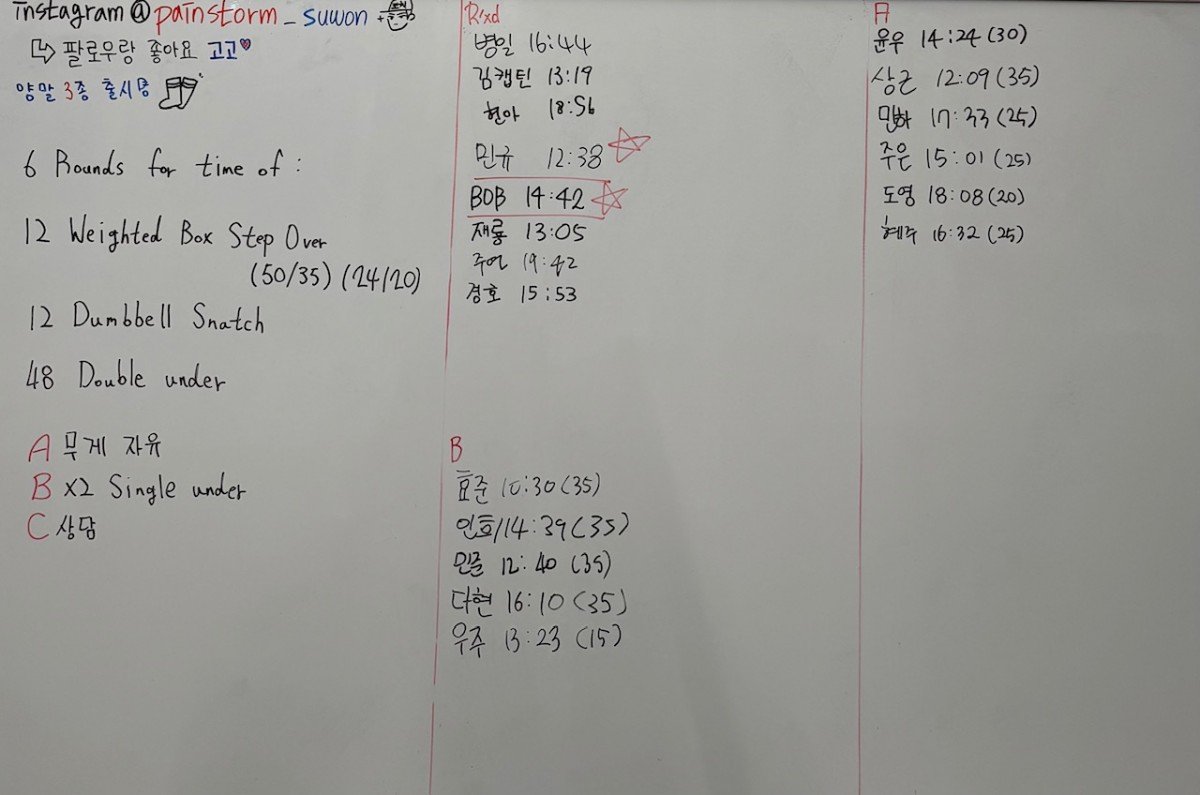 instagram @painstorm_suwon
팔로우랑 좋아요 고고
양말 3종 출시중
6 Rounds for time of :
12 Weighted Box Step Over
(50/35) (24/20)
12 Dumbbell Snatch
48 Double under
A 무게 자유
B X2 Single under
C 상담
R'xd
병일 16:44
김캡틴 13:19
현아 18:56
민규 12:38
BOB 14:42
재룡 13:05
주연 19:42
경호 15:53
B
효준 10:30 (35)
인호 14:39 (35)
민준 12:40 (35)
다현 16:10 (35)
우주 13:23 (15)
A
윤우 14:24 (30)
상근 12:09 (35)
민하 17:33 (25)
주은 15:01 (25)
도영 18:08 (20)
혜주 16:32 (25)